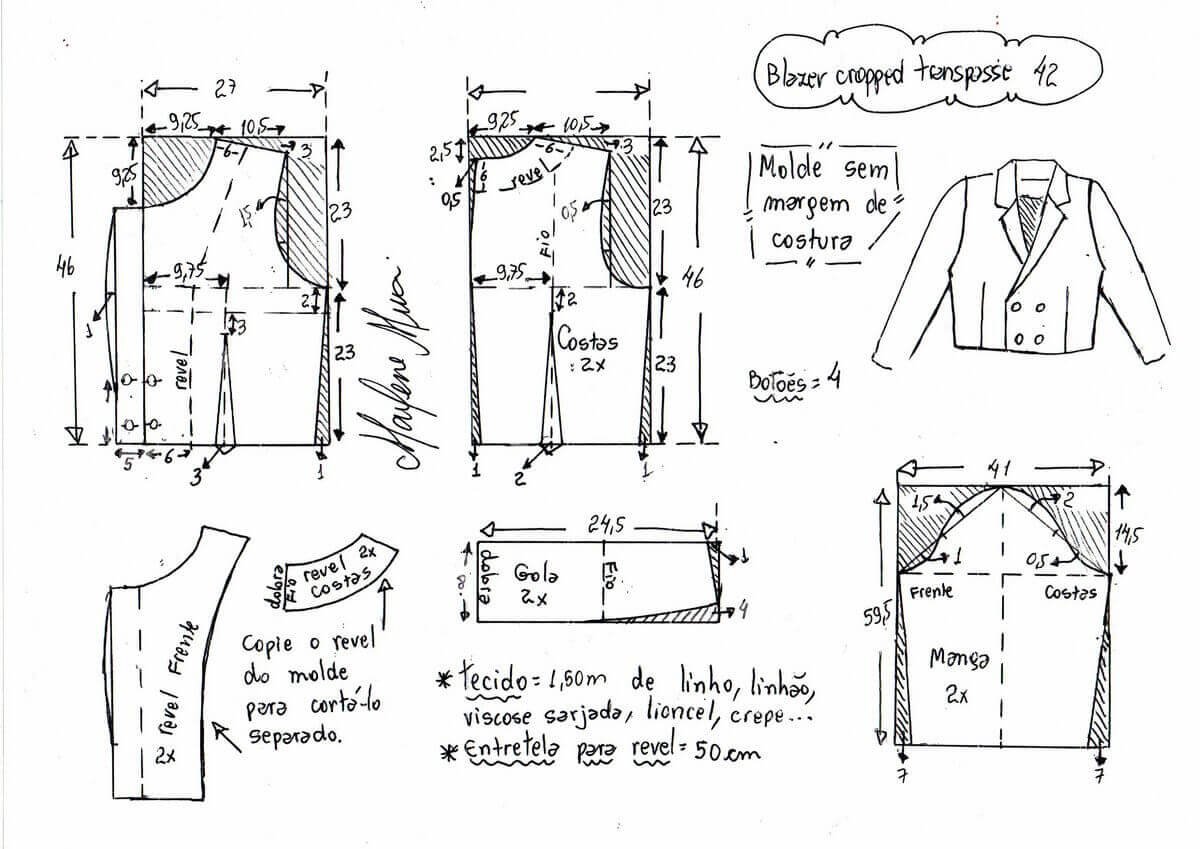 Blazer cropped transpasse 42
Molde sem
margem de
costura
Botões = 4
27
9,25
10,5
6
3
9,25
1,5
23
46
9,75
2
3
1
revel
23
5
6
3
1
Marlene Mukai
9,25
10,5
2,5
6
3
6
revel
0,5
0,5
Fio
23
46
9,75
2
Costas
: 2x
23
1
2
1
revel Frente
2x
dobra
Fio
revel 2x
costas
Copie o revel
do molde
para cortá-lo
separado.
24,5
8
dobra
Gola
2x
Fio
1
4
* Tecido = 1,50m de linho, linhão,
viscose sarjada, lioncel, crepe...
* Entretela para revel = 50cm
41
1,5
2
14,5
1
0,5
Frente
Costas
59,5
Manga
2x
7
7